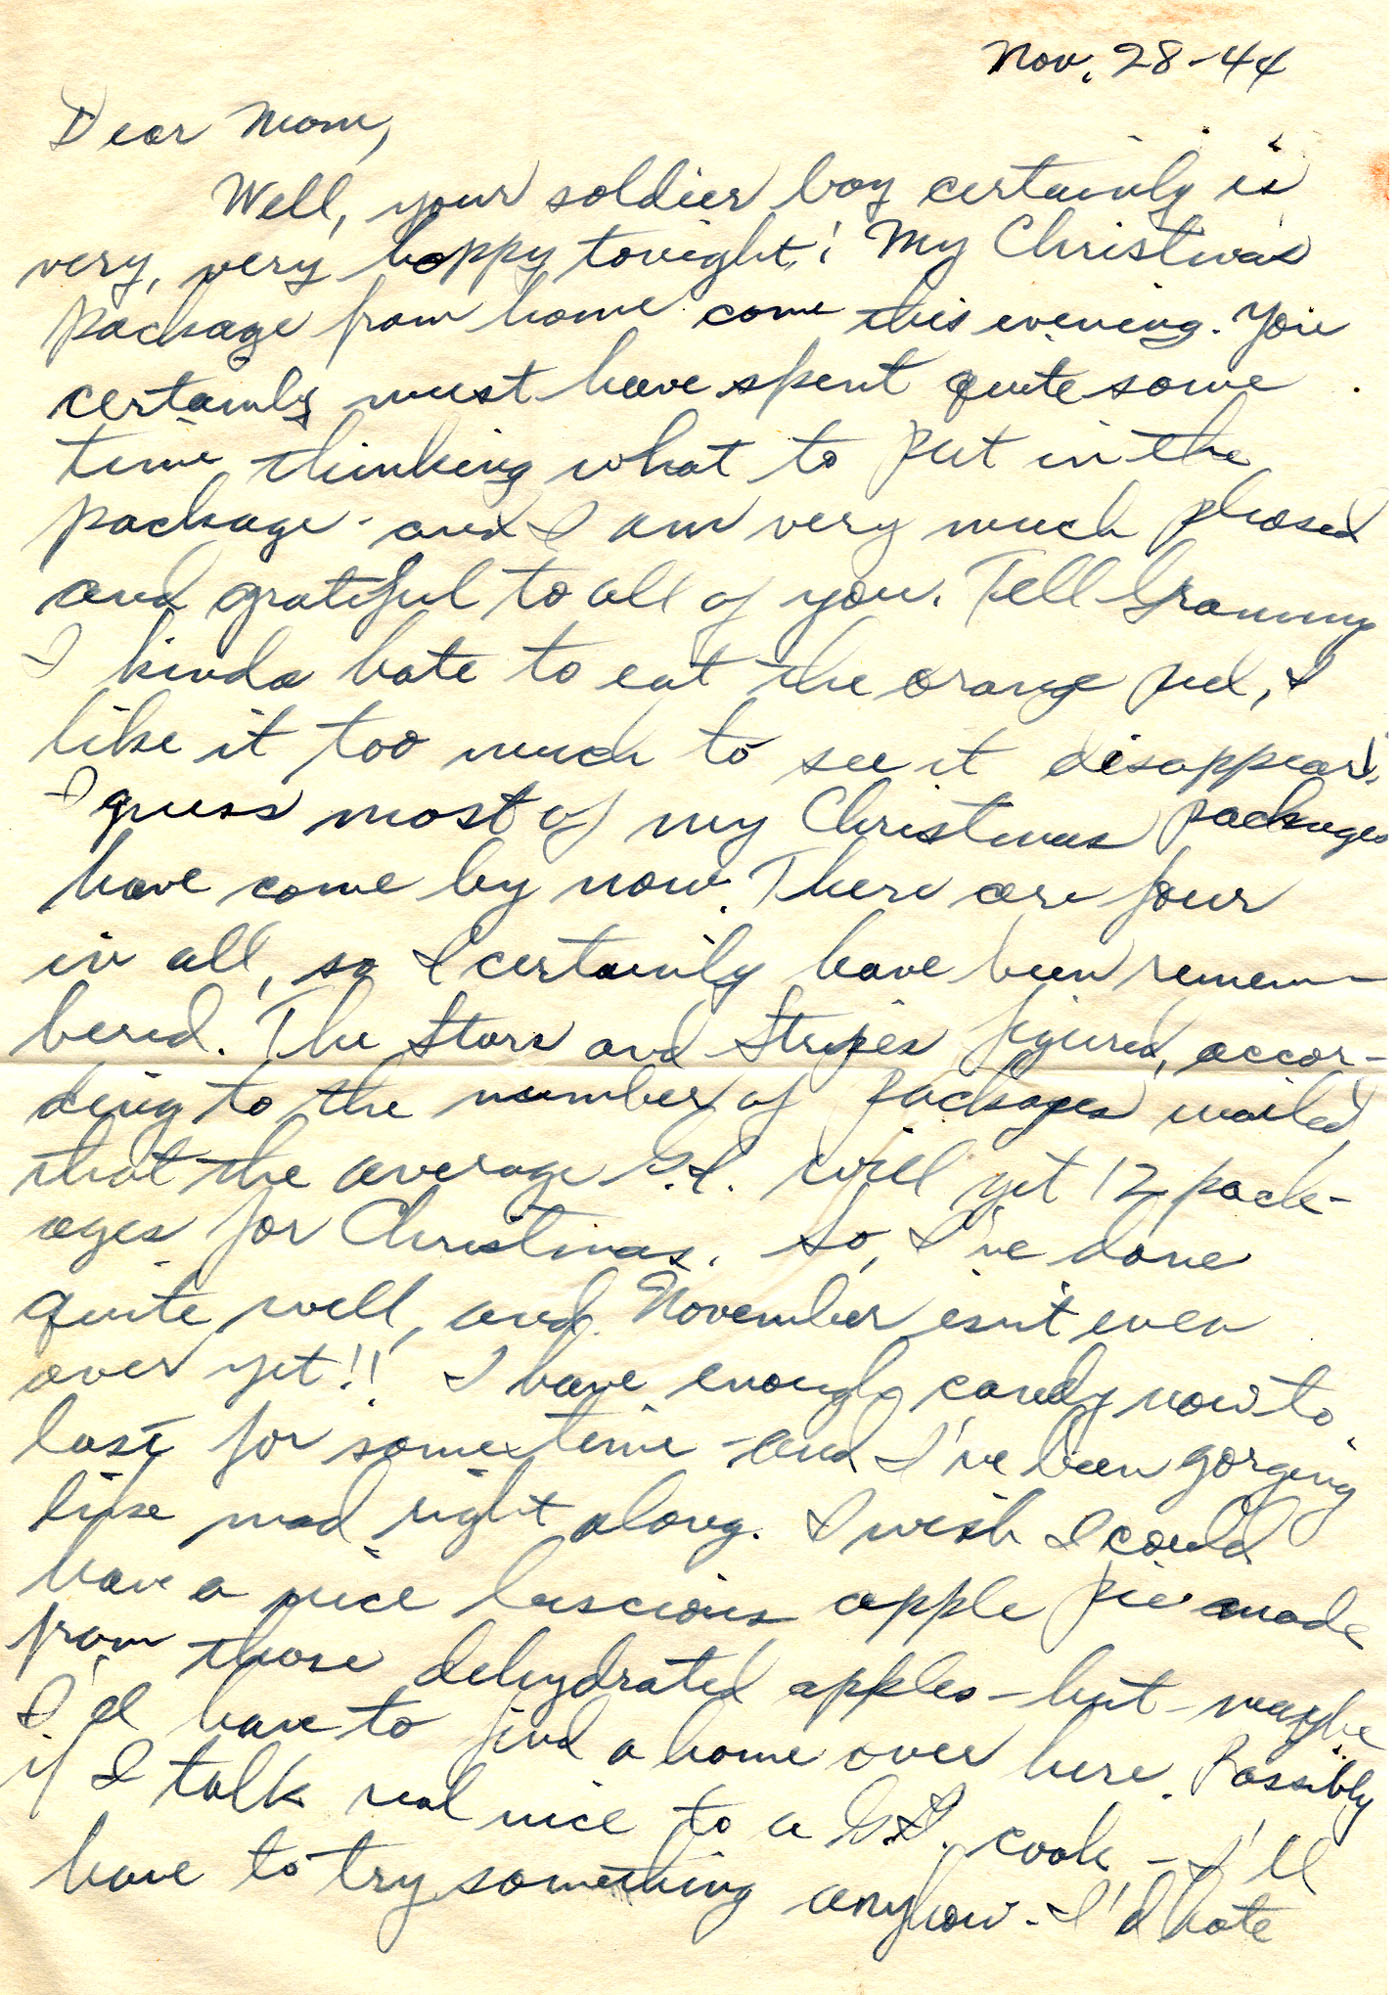 Nov. 28-44
Dear Mom,
Well, your soldier boy certainly is
very, very happy tonight! My Christmas
package from home come this evening. You
certainly must have spent quite some
time thinking what to put in the
package - and I am very much pleased
and grateful to all of you. Tell Grammy
I kinda hate to eat the orange peel, I
like it too much to see it disappear!
I guess most of my Christmas packages
have come by now. There are four
in all, so I certainly have been remem-
bered. The Stars and Stripes figured, accor-
ding to the number of packages mailed,
that the average G.I. will get 12 pack-
ages for Christmas. So, I've done
quite well, and November isn't even
over yet!! I have enough candy now to
last for some time - and I've been gorging
like mad right along. I wish I could
have a nice luscious apple pie made
from those dehydrated apples - but - maybe
I'd have to find a home over here. Possibly
if I talk real nice to a G.I. cook - I'll
have to try something anyhow. - I'd hate